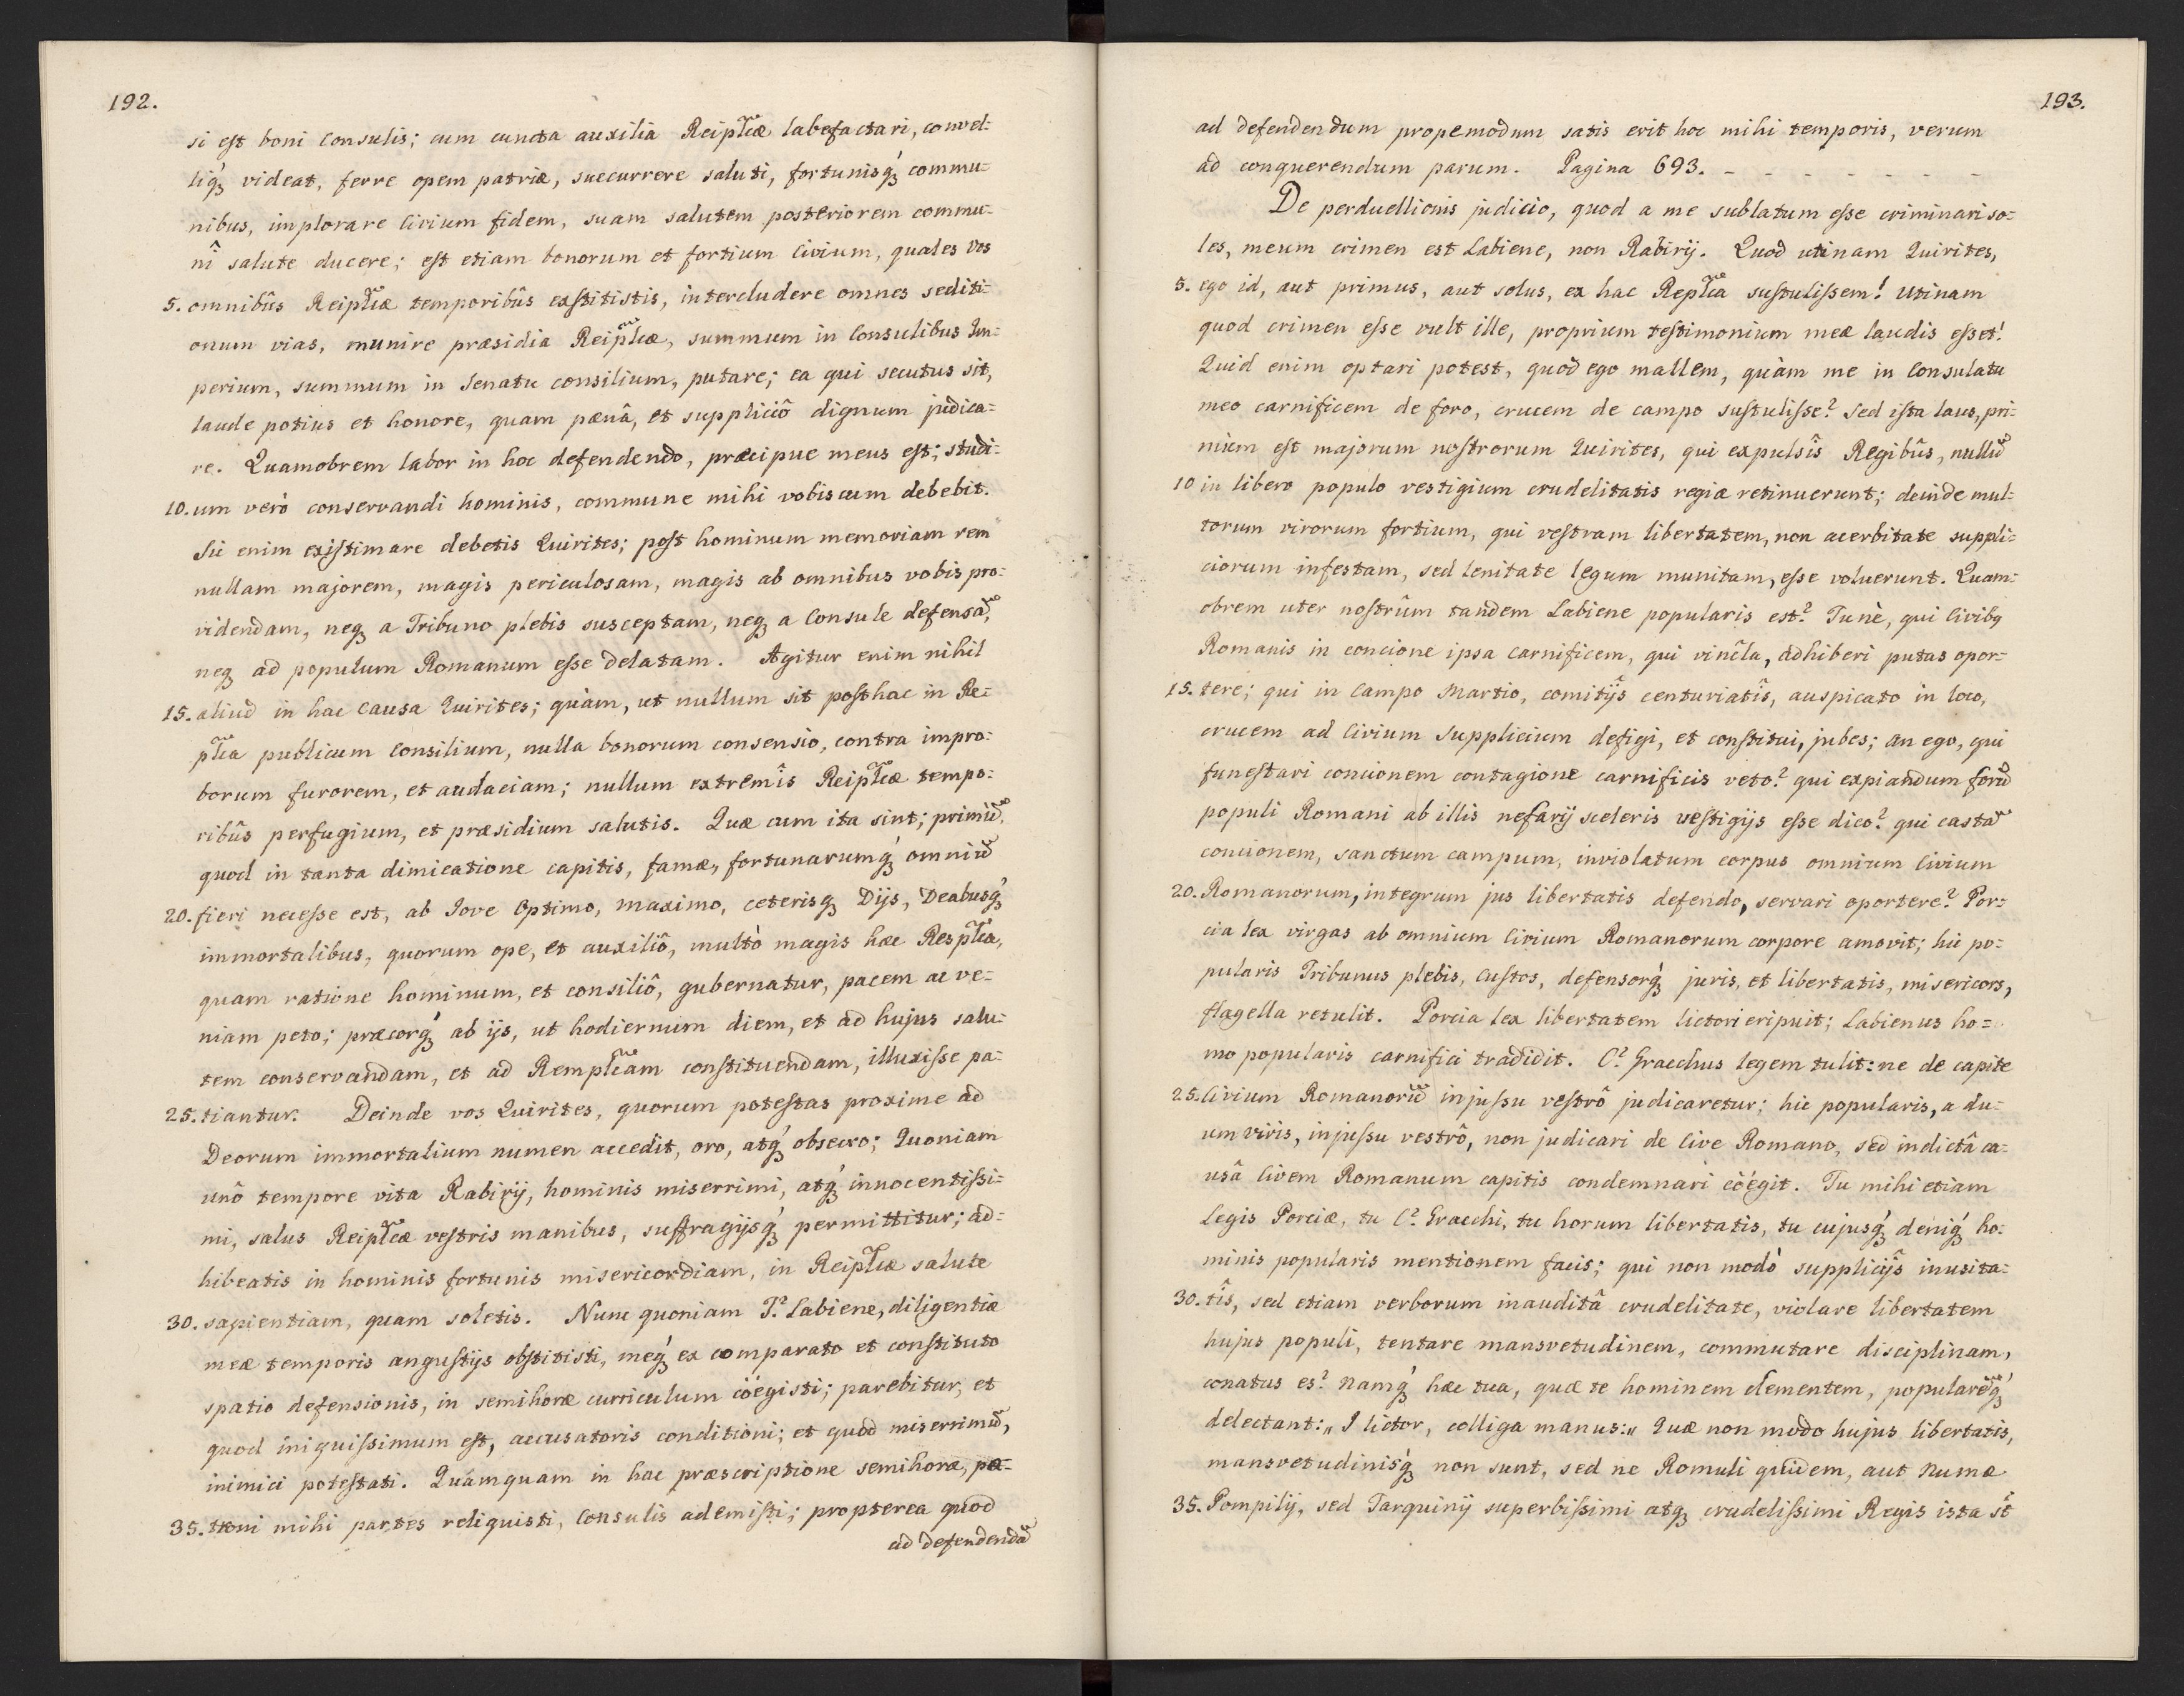 192.
si eſt boni Consulis; cum cuncta auxilia Reiplꝛæ labefactari, convel=
liq́ꝫ videat, ferre opem patriæ, succurrere saluti, fortunisq́ꝫ commu=
nibus, implorare Civium fidem, suam salutem posteriorem commu=
nî salute ducere; eſt etiam bonorum et fortium Civium, quales vos
5. omnibûs Reiplĩcæ temporibûs exſtitistis, intercludere omnes sediti=
onum vias, munire præsidia Reiplĩcæ, summum in Consulibus Im=
perium, summum in Senatu consilium, putare; ea qui secutus sit,
laude potius et honore, quam pænâ, et suppliciô dignum judica=
re. Quamobrem labor in hoc defendendo, præcipue meus eſt; studi=
10. um verò conservandi hominis, commune mihi vobiscum debebit.
Sic enim exiſtimare debetis Quirites; poſt hominum memoriam rem
nullam majorem, magis periculosam, magis ab omnibus vobis pro=
videndam, neqꝫ a Tribuno plebis susceptam, neqꝫ a Consule defensã,
neqꝫ ad populum Romanum eſse delatam. Agitur enim nihil
15. aliud in hac Causa Quirites; quàm, ut nullum sit poſthac in Re=
plĩca publicum Consilium, nulla bonorum consensio, contra impro=
borum furorem, et audaciam; nullum extremîs Reiplĩcæ tempo=
ribûs perfugium, et præsidium salutis. Quæ cum ita sint; primũ,
quod in tanta dimicatione capitis, famæ, fortunarumq́ꝫ omniũ
20. fieri neceſse est, ab Jove Optimo, Maximo, ceterisqꝫ Dijs, Deabusq́ꝫ
immortalibus, quorum ope, et auxiliô, multò magis hæc Resplĩca,
quam ratione hominum, et consiliô, gubernatur, pacem ac ve=
niam peto; præcorq́ꝫ ab ijs, ut hodiernum diem, et ad hujus salu=
tem conservandam, et ad Remplĩcam conſtituendam, illuxiſse pa=
25. tiantur. Deinde vos Quirites, quorum poteſtas proxime ad
Deorum immortalium numen accedit, oro, atq́ꝫ obsecro; Quoniam
unô tempore vita Rabirij, hominis miserrimi, atq́ꝫ innocentiſsi=
mi, salus Reiplĩcæ veſtris manibus, suffragijsq́ꝫ permittitur; ad=
hibeatis in hominis fortunis misericordiam, in Reiplĩcæ salute
30. sapientiam, quam soletis. Nunc quoniam T.² Labiene, diligentiæ
meæ temporis anguſtijs obſtitisti, meq́ꝫ ex comparato et conſtituto
spatio defensionis, in semihoræ curriculum cöégisti; parebitur, et
quod iniquiſsimum eſt, accusatoris conditioni; et quod miserrimũ,
inimici poteſtati. Quàmquam in hac præscriptione semihoræ, pa=
35. troni mihi partes reliquisti, Consulis ademiſti; propterea quod
ad defendendũ
193.
ad defendendum propemodum satis erit hoc mihi temporis, verum
ad conquerendum parum. Pagina 693. - - - - - - -
De perduellionis judicio, quod a me sublatum eſse criminari so=
les, meum crimen est Labiene, non Rabirij. Quod utinam Quirites,
5. ego id, aut primus, aut solus, ex hac Replĩca suſtuliſsem! Utinam
quod crimen eſse vult ille, proprium teſtimonium meæ laudis eſset!
Quid enim optari potest, quod ego mallem, quàm me in Consulatu
meo carnificem de foro, crucem de campo suſtuliſse? Sed iſta laus, pri=
mùm eſt majorum noſtrorum Quirites, qui expulsîs Regibûs, nullũ
10 in libero populo vestigium crudelitatis regiæ retinuerunt; deinde mul=
torum virorum fortium, qui veſtram libertatem, non acerbitate suppli=
ciorum infestam, sed lenitate legum munitam, eſse voluerunt. Quam=
obrem uter noſtrûm tandem Labiene popularis est? Tunè, qui Civibqꝫ
Romanis in concione ipsa carnificem, qui vincla, adhiberi putas opor=
15. tere; qui in Campo Martio, comitijs centuriatîs, auspicato in loco,
crucem ad Civium Supplicium defigi, et conſtitui, jubes; an ego, qui
funeſtari concionem contagione carnificis veto? qui expiandum forũ
populi Romani ab illis nefarij sceleris veſtigijs eſse dico? qui castã
concionem, sanctum campum, inviolatum corpus omnium Civium
20. Romanorum, integrum jus libertatis defendo, servari oportere? Por=
cia lex virgas ab omnium Civium Romanorum corpore amovit; hic po=
pularis Tribunus plebis, Cuſtos, defensorq́ꝫ juris, et libertatis, misericors,
flagella retulit. Porcia lex libertatem lictori eripuit; Labienus ho=
mo popularis carnifici tradidit. C.² Gracchus legem tulit: ne de capite
25. Civium Romanorũ injuſsu veſtrô judicaretur; hic popularis, a du=
umviris, injuſsu vestrô, non judicari de Cive Romano, sed indictâ ca=
usâ Civem Romanum capitis condemnari cöégit. Tu mihi etiam
Legis Porciæ, tu C.² Gracchi, tu horum libertatis, tu cujusq́ꝫ deniq́ꝫ ho=
minis popularis mentionem facis; qui non modò supplicijs inusita=
30. tîs, sed etiam verborum inauditâ crudelitate, violare libertatem
hujus populi, tentare mansvetudinem, commutare disciplinam,
conatus es? Namq́ꝫ hæc tua, quæ te hominem clementem, popularẽq́ꝫ
delectant: „I lictor, colliga manus:„ Quæ non modo hujus libertatis,
mansvetudinisq́ꝫ non sunt, sed ne Romuli quidem, aut Numæ
35. Pompilij, sed Tarquinij superbiſsimi atqꝫ crudeliſsimi Regis ista st̃